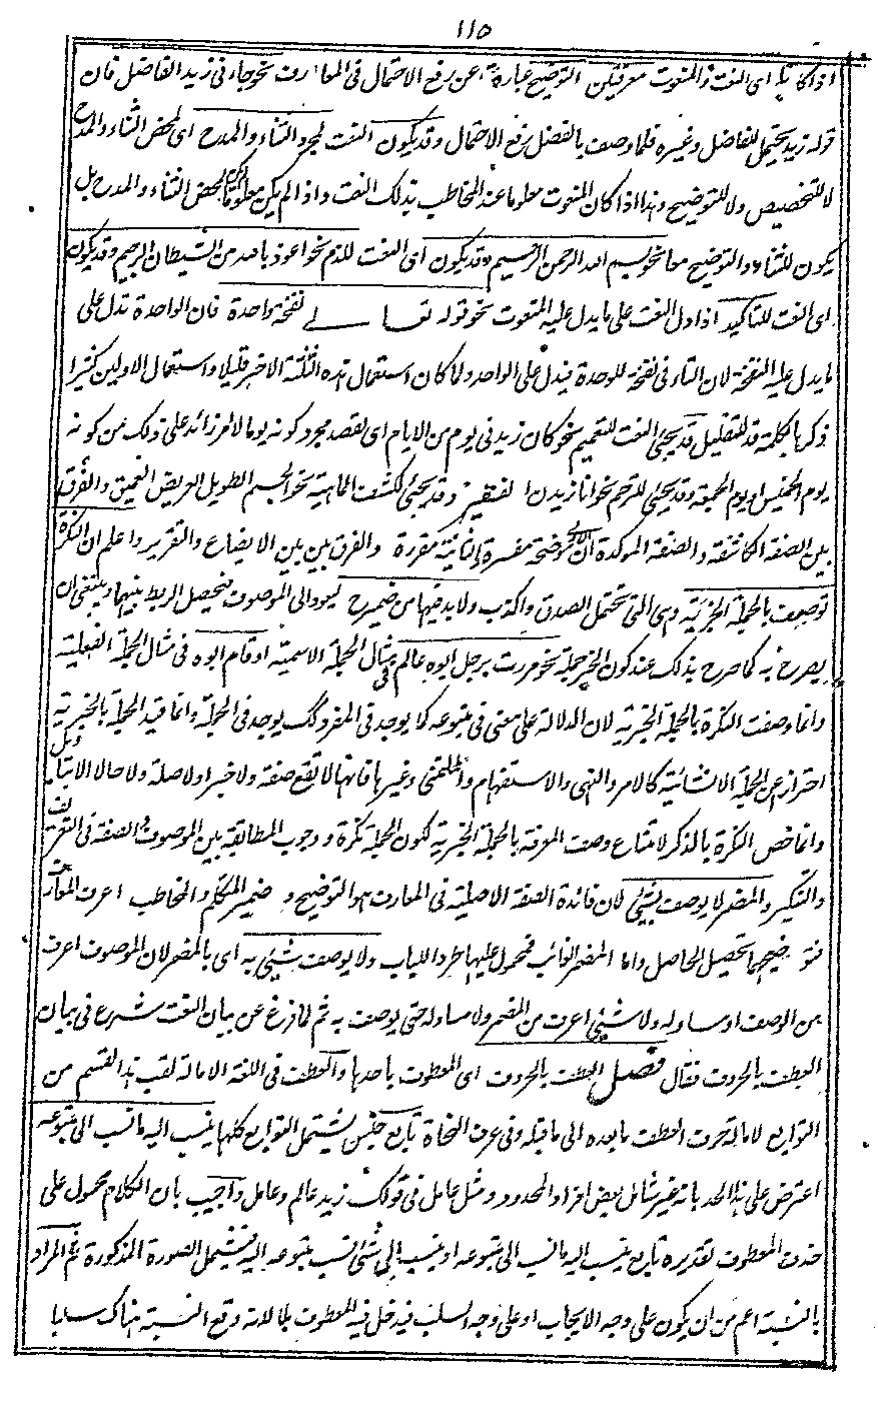 ١١٥
اذا كانا اى النعت والمنعوت معرفتين التوضيح عبارة عن رفع الاحتمال فى المعارف نحو جاءنى زيد الفاضل فان
قوله زيد يحتمل للفاضل وغيره فلما وصف بالفضل رفع الاحتمال وقد يكون النعت لمجرد الثناء والمدح اى لمحض الثناء والمدح
لا للتخصيص ولا للتوضيح وهذا اذا كان المنعوت معلوما عند المخاطب بذلك النعت واذا لم يكن معلوما لم يكن لمحض الثناء والمدح بل
يكون للثناء والتوضيح معا نحو بسم الله الرحمن الرحيم وقد يكون اى النعت للذم نحو اعوذ بالله من الشيطان الرجيم وقد يكون
اى النعت للتاكيد اذا دل النعت على ما يدل عليه المنعوت نحو قوله تعالى نفخة واحدة فان الواحدة تدل على
ما يدل عليه النفخة لان التاء فى نفخة للوحدة فيدل على الواحد ولما كان استعمال هذه الثلثة الاخير قليلا واستعمال الاولين كثيرا
ذكرها بكلمة قد للتقليل قد يجئ النعت للتعميم نحو كان زيد فى يوم من الايام اى لقصد مجرد كونه يوما لا امر زائد على ذلك من كونه
يوم الخميس او يوم الجمعة وقد يجئ للترحم نحو انا زيدن الفقير وقد يجئ لكشف الماهية نحو الجسم الطويل العريض العميق والفرق
بين الصفة الكاشفة والصفة الموكدة ان الاولى موضحة مفسرة والثانية مقررة والفرق بين بين الايضاح والتقرير واعلم ان النكرة
توصف بالجملة الخبرية وهى التى تحتمل الصدق والكذب ولا بد فيها من ضمير يعود الى الموصوف فيحصل الربط بينهما وينبغى ان
يصرح به كما صرح بذلك عند كون الخبر جملة نحو مررت برجل ابوه عالم فى مثال الجملة الاسمية او قام ابوه فى مثال الجملة الفعلية
وانما وصفت النكرة بالجملة الخبرية لان الدلالة على معنى فى متبوعه كما يوجد فى المفرد كذلك يوجد فى الجملة وانما قيد الجملة بالخبرية
احترازا عن الجملة الانشائية كالامر والنهى والاستفهام والتمنى وغيرها فانها لا تقع صفة ولا خبرا ولا صلة ولا حالا الا بتاويل
وانما خص النكرة بالذكر لامتناع وصف المعرفة بالجملة الخبرية لكون الجملة نكرة و وجوب المطابقة بين الموصوف والصفة فى التعريف
والتنكير والمضمر لا يوصف بشئ لان فائدة الصفة الاصلية فى المعارف هو التوضيح و ضمير المتكلم والمخاطب اعرف المعارف
فتوضيحهما تحصيل الحاصل واما المضمر الغائب فمحمول عليهما طردا للباب ولا يوصف شئ به اى بالمضمر لان الموصوف اعرف
من الوصف او مساو له ولا شئ اعرف من المضمر ولا مساو له حتى يوصف به ثم لما فرغ عن بيان النعت شرع فى بيان
العطف بالحروف فقال فصل العطف بالحروف اى المعطوف باحدها والعطف فى اللغة الامالة لقب هذا القسم من
التوابع لامالة حرف العطف ما بعده الى ما قبله وفى عرف النحاة تابع جنس يشتمل التوابع كلها ينسب اليه ما نسب الى متبوعه
اعترض على هذا الحد بانه غير شامل لبعض افراد المحدود ومثل عامل فى قولك زيد عالم وعامل واجيب بان الكلام محمول على
حذف المعطوف تقديره تابع ينسب اليه ما نسب الى متبوعه او ينسب الى شئ نسب متبوعه اليه فيشمل الصورة المذكورة ثم المراد
بالنسبة اعم من ان يكون على وجه الايجاب او على وجه السلب فيدخل فيه المعطوف بلا لانه وقع النسبة هناك سلبا